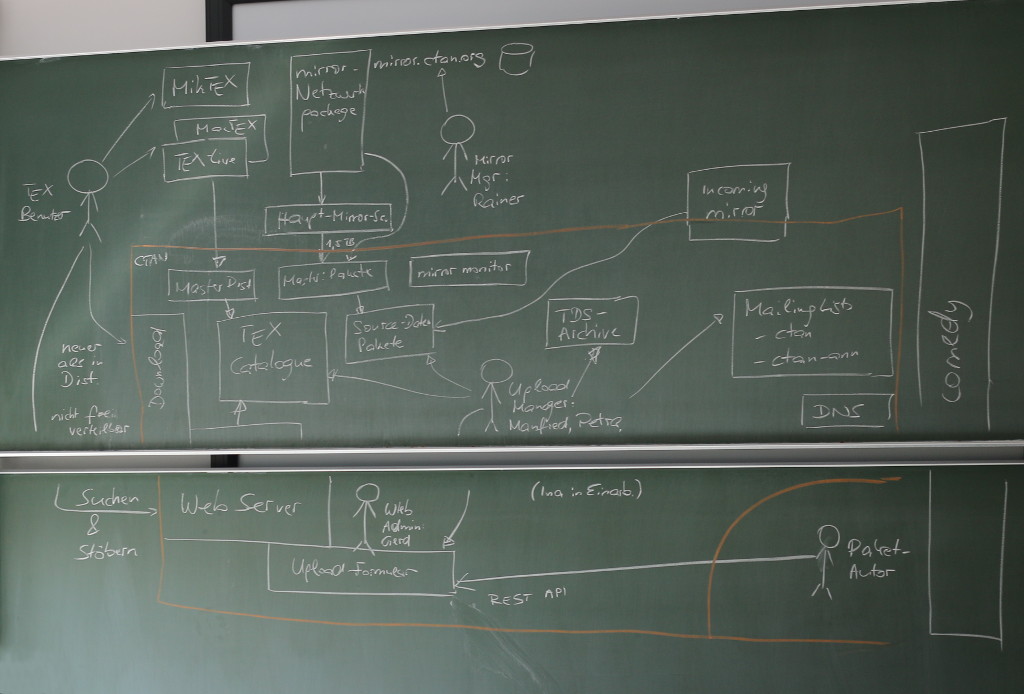 MikTEX
mirror-
Netzwerk
package
mirror.ctan.org
MacTEX
TEX-Live
TEX
Benutzer
Mirror
Mgr:
Rainer
Incoming
mirror
Haupt-Mirror-Se.
1,5 TB
CTAN
Master Dist
Mastr: Pakete
mirror monitor
TEX
Catalogue
Source-Daten
Pakete
TDS-
Archive
Mailing Lists
- ctan
- ctan-ann
DNS
comedy
Download
neuer
als in
Dist.
nicht frei
verteilbar
Upload
Manager:
Manfred, Petra,
(Ina in Einarb.)
Suchen
&
Stöbern
Web Server
Web
Admin:
Gerd
Upload-Formular
REST API
Paket-
Autor